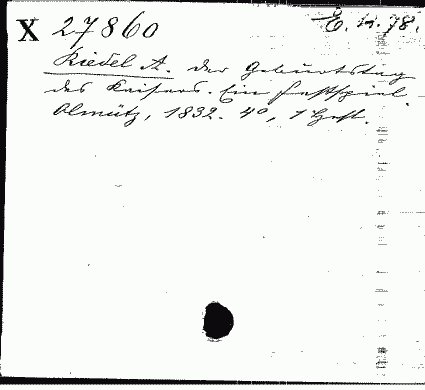 X 27860 E. m. 78.
Riedel A. der Geburtstag
des Kaisers. Ein Festspiel.
Olmütz, 1832. 4°, 1 Heft.